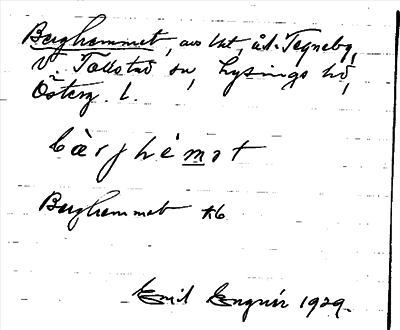 Berghemmet, av lht, å L. Tegneby,
V Tollstad sn, Lysings hd,
Österg. l.
bàrghèmət
Berghemmet
Emil Engnér 1929.